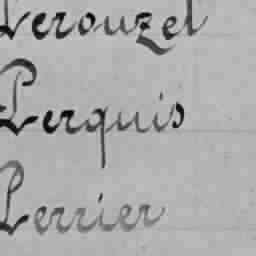 Perouzel
Perquis
Perrier